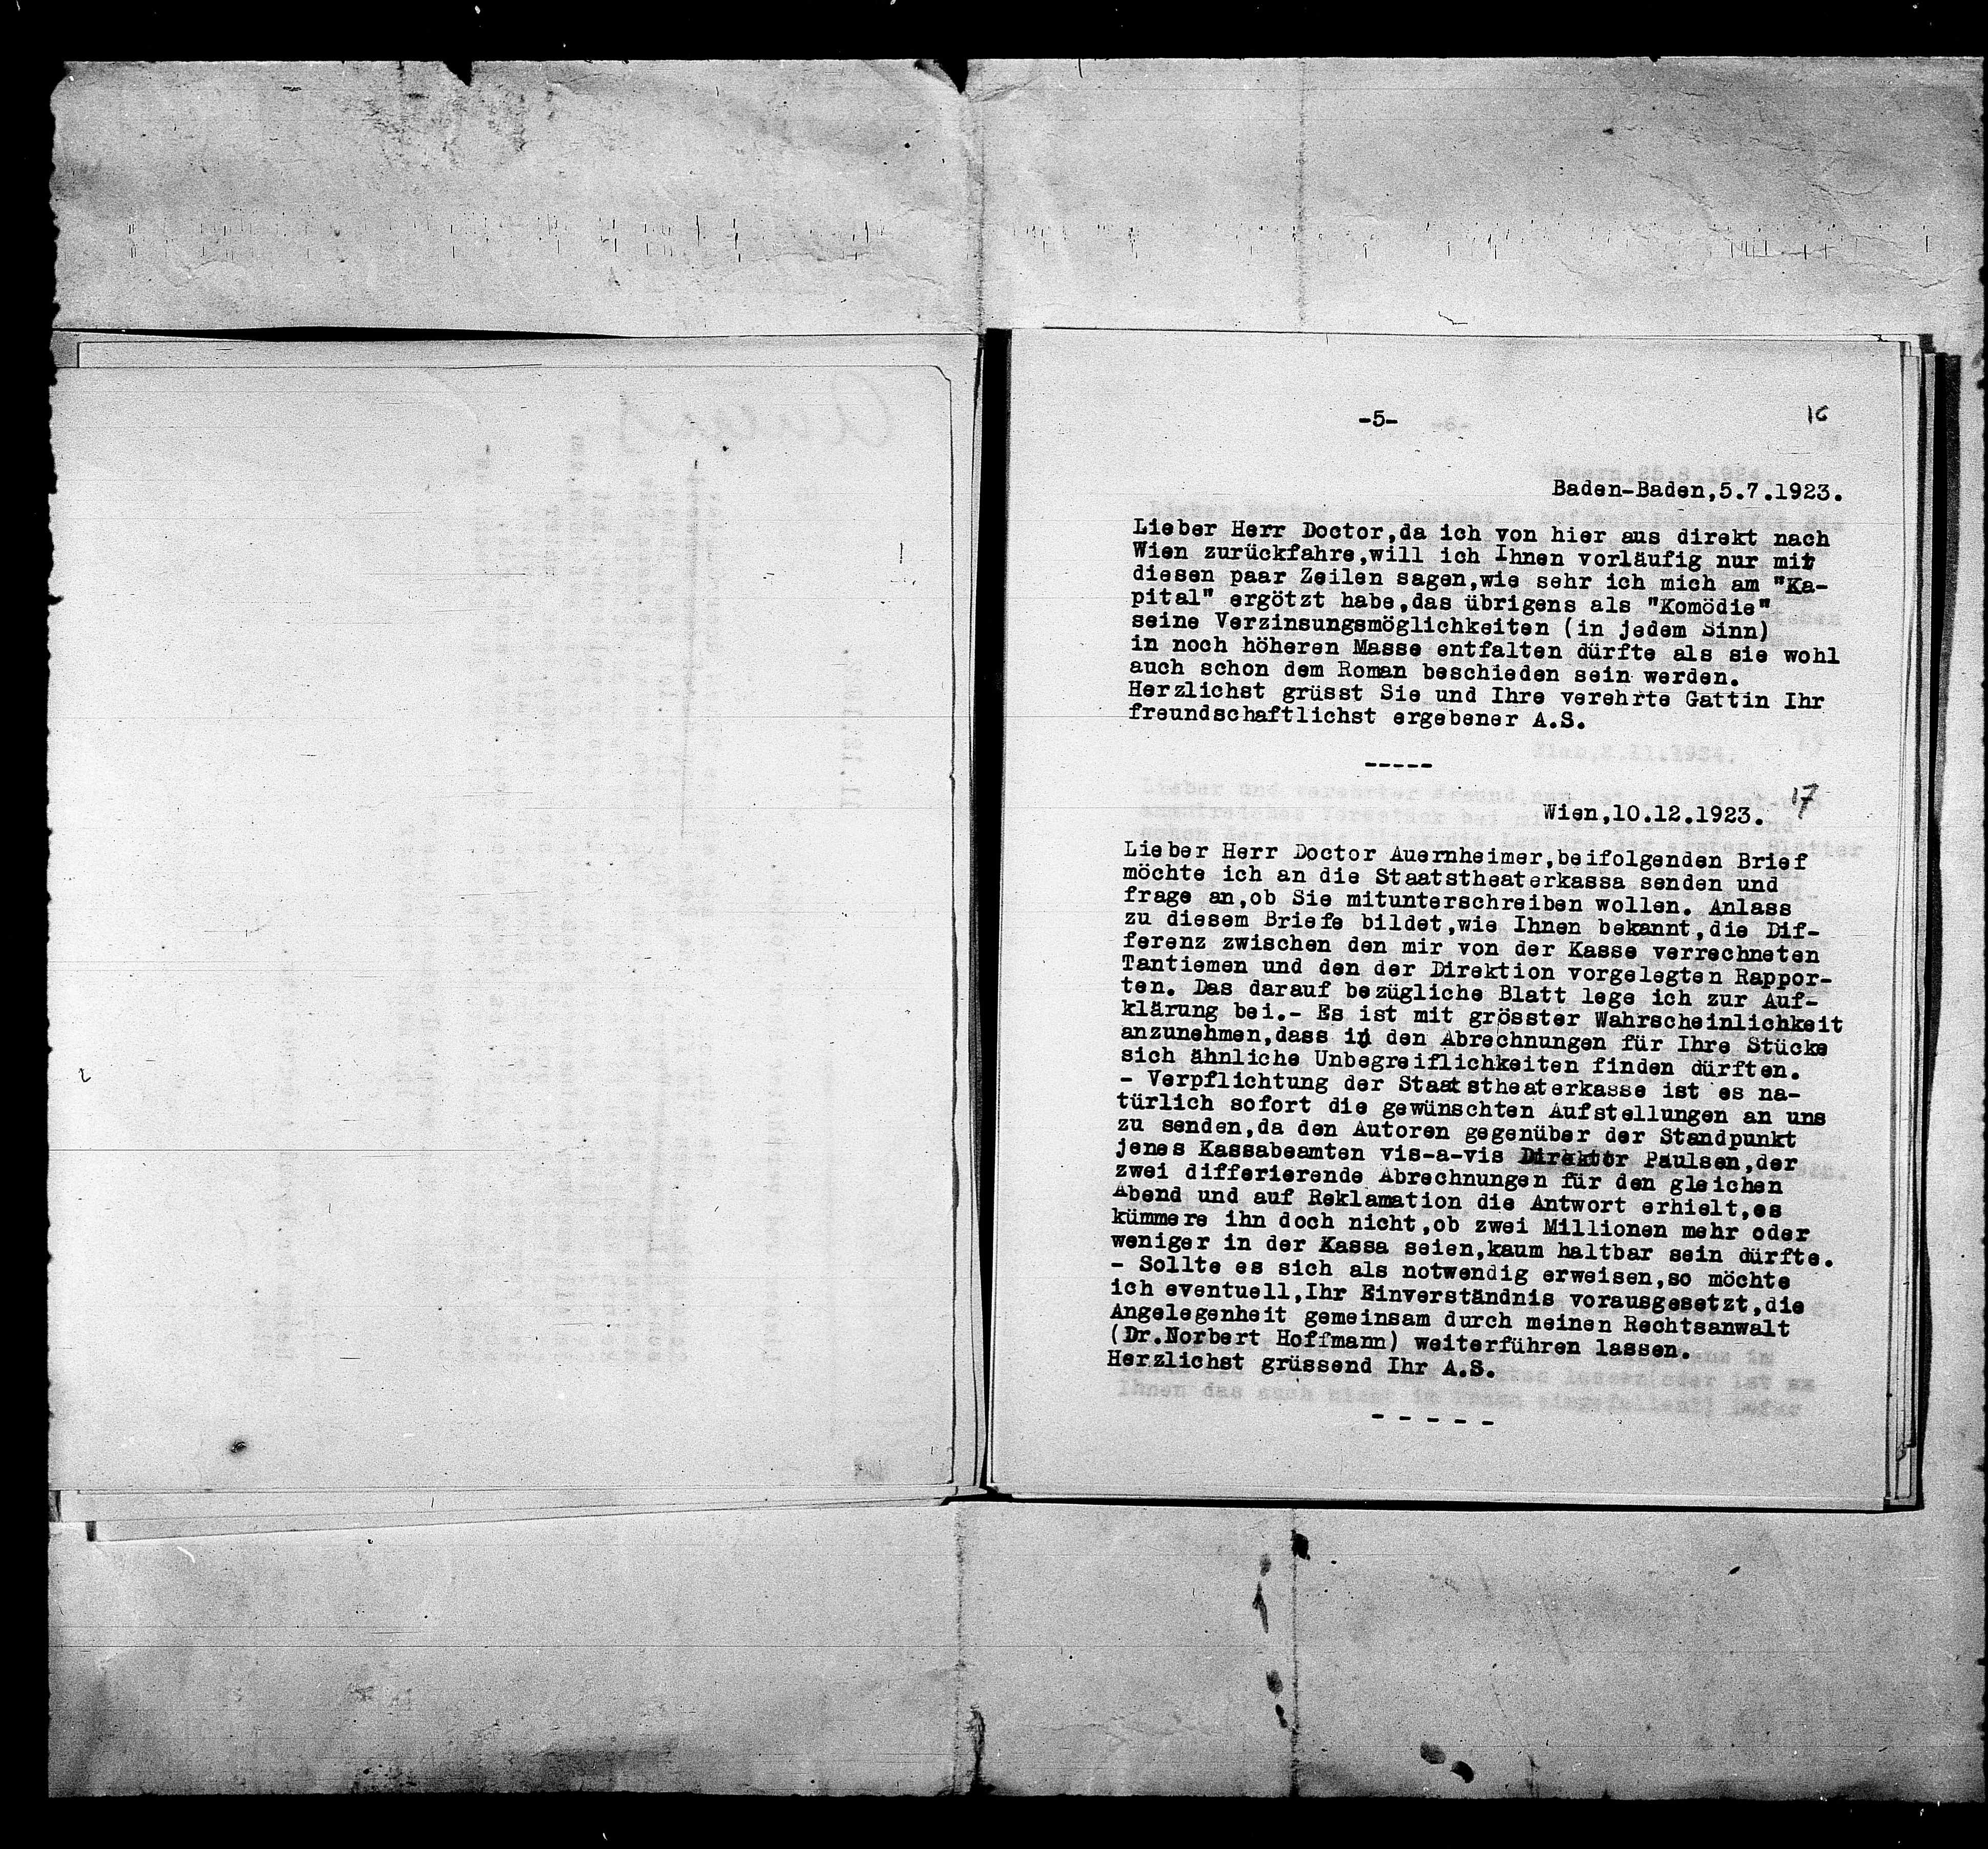 -5-
16
Baden-Baden,5.7.1923.
Lieber Herr Doctor,da ich von hier aus direkt nach
Wien zurückfahre,will ich Ihnen vorläufig nur mit
diesen paar Zeilen sagen,wie sehr ich mich am "Ka-
pital" ergötzt habe,das übrigens als "Komödie"
seine Verzinsungsmöglichkeiten (in jedem Sinn)
in noch höheren Masse entfalten dürfte als sie wohl
auch schon dem Roman beschieden sein werden.
Herzlichst grüsst Sie und Ihre verehrte Gattin Ihr
freundschaftlichst ergebener A.S.
-----
17
Wien,10.12.1923.
Lieber Herr Doctor Auernheimer,beifolgenden Brief
möchte ich an die Staatstheaterkassa senden und
frage an,ob Sie mitunterschreiben wollen. Anlass
zu diesem Briefe bildet,wie Ihnen bekannt,die Dif-
ferenz zwischen den mir von der Kasse verrechneten
Tantiemen und den der Direktion vorgelegten Rappor-
ten. Das darauf bezügliche Blatt lege ich zur Auf-
klärung bei.- Es ist mit grösster Wahrscheinlichkeit
anzunehmen,dass in den Abrechnungen für Ihre Stücke
sich ähnliche Unbegreiflichkeiten finden dürften.
- Verpflichtung der Staatstheaterkasse ist es na-
türlich sofort die gewünschten Aufstellungen an uns
zu senden,da den Autoren gegenüber der Standpunkt
jenes Kassabeamten vis-a-vis Direktor Paulsen,der
zwei differierende Abrechnungen für den gleichen
Abend und auf Reklamation die Antwort erhielt,es
kümmere ihn doch nicht,ob zwei Millionen mehr oder
weniger in der Kassa seien,kaum haltbar sein dürfte.
- Sollte es sich als notwendig erweisen,so möchte
ich eventuell,Ihr Einverständnis vorausgesetzt,die
Angelegenheit gemeinsam durch meinen Rechtsanwalt
(Dr.Norbert Hoffmann) weiterführen lassen.
Herzlichst grüssend Ihr A.S.
- - - - -